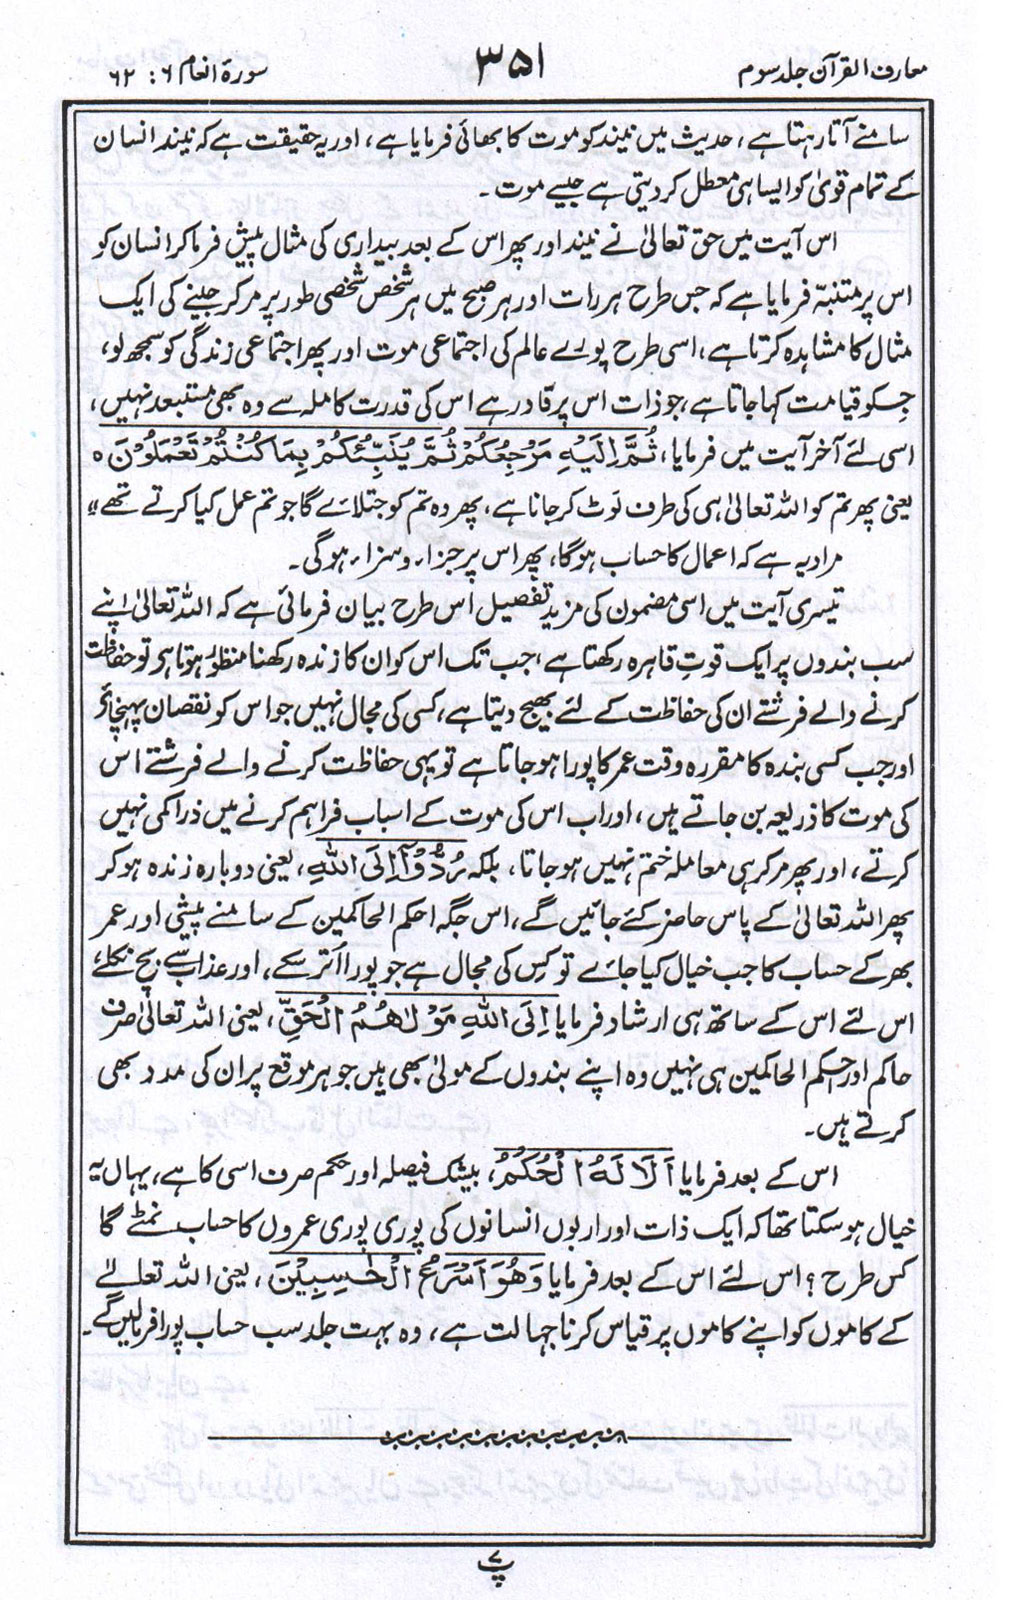 معارف القرآن جلد سوم
۳۵۱
سورۃ انعام ۶ : ۶۲
سامنے آتا رہتا ہے، حدیث میں نیند کو موت کا بھائی فرمایا ہے، اور یہ حقیقت ہے کہ نیند انسان
کے تمام قویٰ کو ایسا ہی معطل کر دیتی ہے جیسے موت۔
اس آیت میں حق تعالیٰ نے نیند اور پھر اس کے بعد بیداری کی مثال پیش فرما کر انسان کو
اس پر متنبہ فرمایا ہے کہ جس طرح ہر رات اور ہر صبح میں ہر شخص شخصی طور پر مر کر جینے کی ایک
مثال کا مشاہدہ کرتا ہے، اسی طرح پورے عالم کی اجتماعی موت اور پھر اجتماعی زندگی کو سمجھ لو،
جس کو قیامت کہا جاتا ہے، جو ذات اس پر قادر ہے اس کی قدرت کاملہ سے وہ بھی مستبعد نہیں،
اسی لئے آخر آیت میں فرمایا، ثُمَّ اِلَیْہِ مَرْجِعُکُمْ ثُمَّ یُنَبِّئُکُمْ بِمَا کُنْتُمْ تَعْمَلُوْنَ ہ
یعنی پھر تم کو اللہ تعالیٰ ہی کی طرف لوٹ کر جانا ہے، پھر وہ تم کو جتلائے گا جو تم عمل کیا کرتے تھے"
مراد یہ ہے کہ اعمال کا حساب ہوگا، پھر اس پر جزار و سزار ہوگی۔
تیسری آیت میں اسی مضمون کی مزید تفصیل اس طرح بیان فرمائی ہے کہ اللہ تعالیٰ اپنے
سب بندوں پر ایک قوتِ قاہرہ رکھتا ہے، جب تک اس کو ان کا زندہ رکھنا منظور ہوتا ہی تو حفاظت
کرنے والے فرشتے ان کی حفاظت کے لئے بھیج دیتا ہے، کسی کی مجال نہیں جو اس کو نقصان پہنچائے
اور جب کسی بندہ کا مقررہ وقت عمر کا پورا ہو جاتا ہے تو یہی حفاظت کرنے والے فرشتے اس
کی موت کا ذریعہ بن جاتے ہیں، اور اب اس کی موت کے اسباب فراہم کرنے میں ذرا کمی نہیں
کرتے، اور پھر مر کر ہی معاملہ ختم نہیں ہو جاتا، بلکہ رُدُّوْآ اِلَی اللہِ، یعنی دوبارہ زندہ ہو کر
پھر اللہ تعالیٰ کے پاس حاضر کئے جائیں گے، اس جگہ احکم الحاکمین کے سامنے پیشی اور عمر
بھر کے حساب کا جب خیال کیا جائے تو کس کی مجال ہے جو پورا اُتر سکے، اور عذاب سے بچ نکلے،
اس لئے اس کے ساتھ ہی ارشاد فرمایا اِلَی اللہِ مَوْلٰھُمُ الْحَقِّ، یعنی اللہ تعالیٰ صرف
حاکم اور احکم الحاکمین ہی نہیں وہ اپنے بندوں کے مولیٰ بھی ہیں جو ہر موقع پر ان کی مدد بھی
کرتے ہیں۔
اس کے بعد فرمایا اَلَا لَہُ الْحُکْمُ، بیشک فیصلہ اور حکم صرف اسی کا ہے، یہاں یہ
خیال ہو سکتا تھا کہ ایک ذات اور اربوں انسانوں کی پوری پوری عمروں کا حساب نمٹے گا
کس طرح؟ اس لئے اس کے بعد فرمایا وَھُوَ اَسْرَعُ الْحٰسِبِیْنَ، یعنی اللہ تعالےٰ
کے کاموں کو اپنے کاموں پر قیاس کرنا جہالت ہے، وہ بہت جلد سب حساب پورا فرمالیں گے۔
پ۷